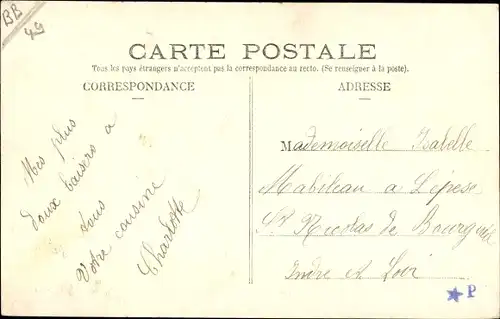 BB
49
CARTE POSTALE
Tous les pays étrangers n'acceptent pas la correspondance au recto. (Se renseigner à la poste).
CORRESPONDANCE
ADRESSE
Mes plus
doux baisers a
tous
Votre cousine
Charlotte
Mademoiselle Isabelle
Mabileau a Lépese
St Nicolas de Bourgueil
Indre et Loir
P